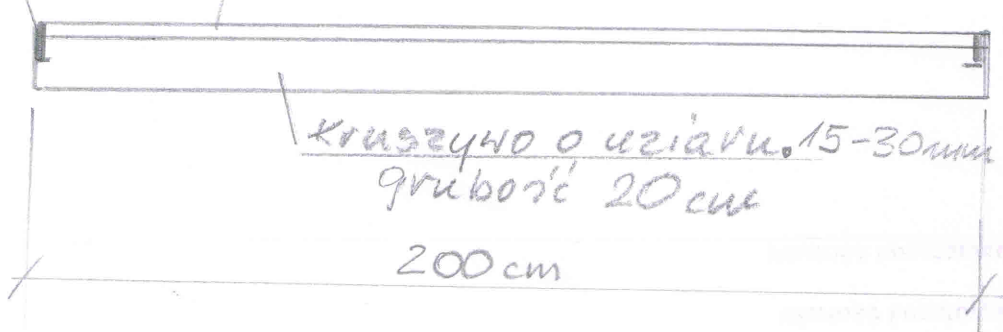 kruszywo o uziarn. 15-30mm
grubość 20cm
200cm